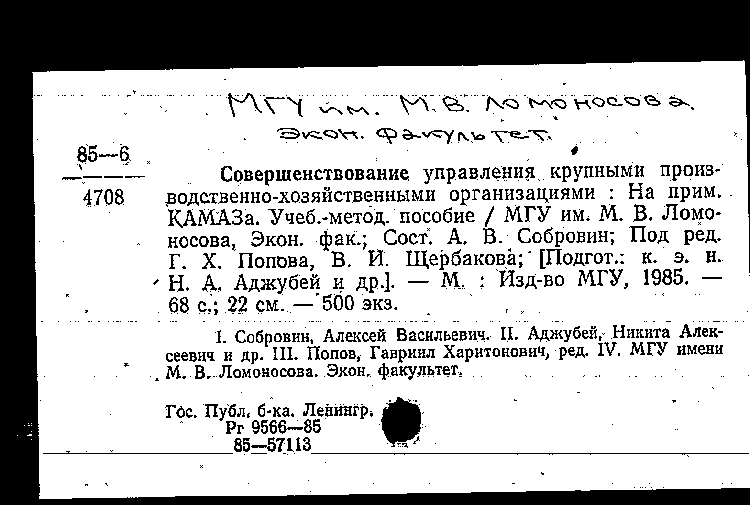 МГУ им. М.В. Ломоносова.
Экон. факультет.
85—6
4708
Совершенствование управления крупными произ-
водственно-хозяйственными организациями : На прим.
КАМАЗа. Учеб.-метод. пособие / МГУ им. М. В. Ломо-
носова, Экон. фак.; Сост. А. В. Собровин; Под ред.
Г. Х. Попова, В. И. Щербакова; [Подгот.: к. э. н.
Н. А. Аджубей и др.]. — М. : Изд-во МГУ, 1985. —
68 с.; 22 см. — 500 экз.
I. Собровин, Алексей Васильевич. II. Аджубей, Никита Алек-
сеевич и др. III. Попов, Гавриил Харитонович, ред. IV. МГУ имени
М. В. Ломоносова. Экон. факультет.
Гос. Публ. б-ка. Ленингр.
Рг 9566—85
85—57113